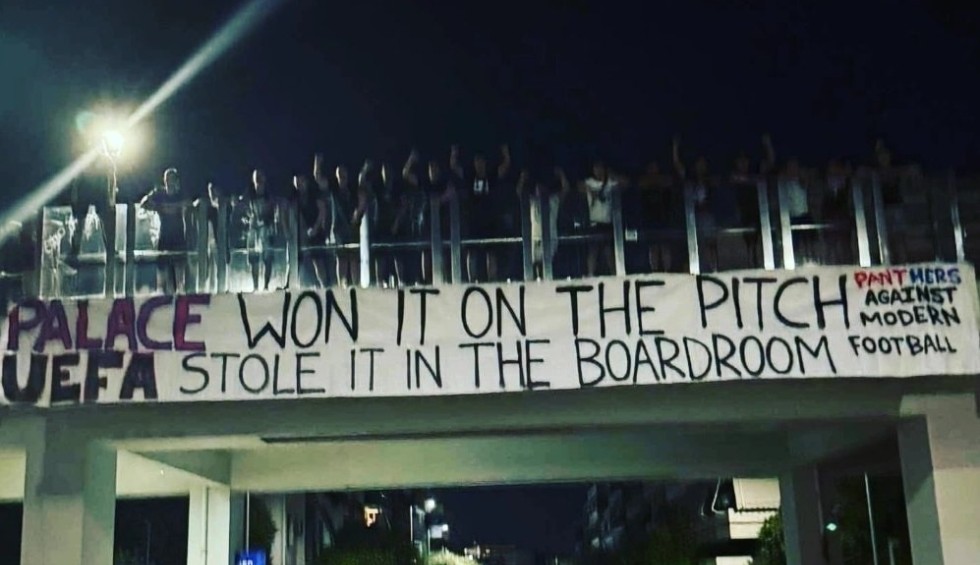 PALACE WON IT ON THE PITCH
UEFA STOLE IT IN THE BOARDROOM
PANTHERS
AGAINST
MODERN
FOOTBALL